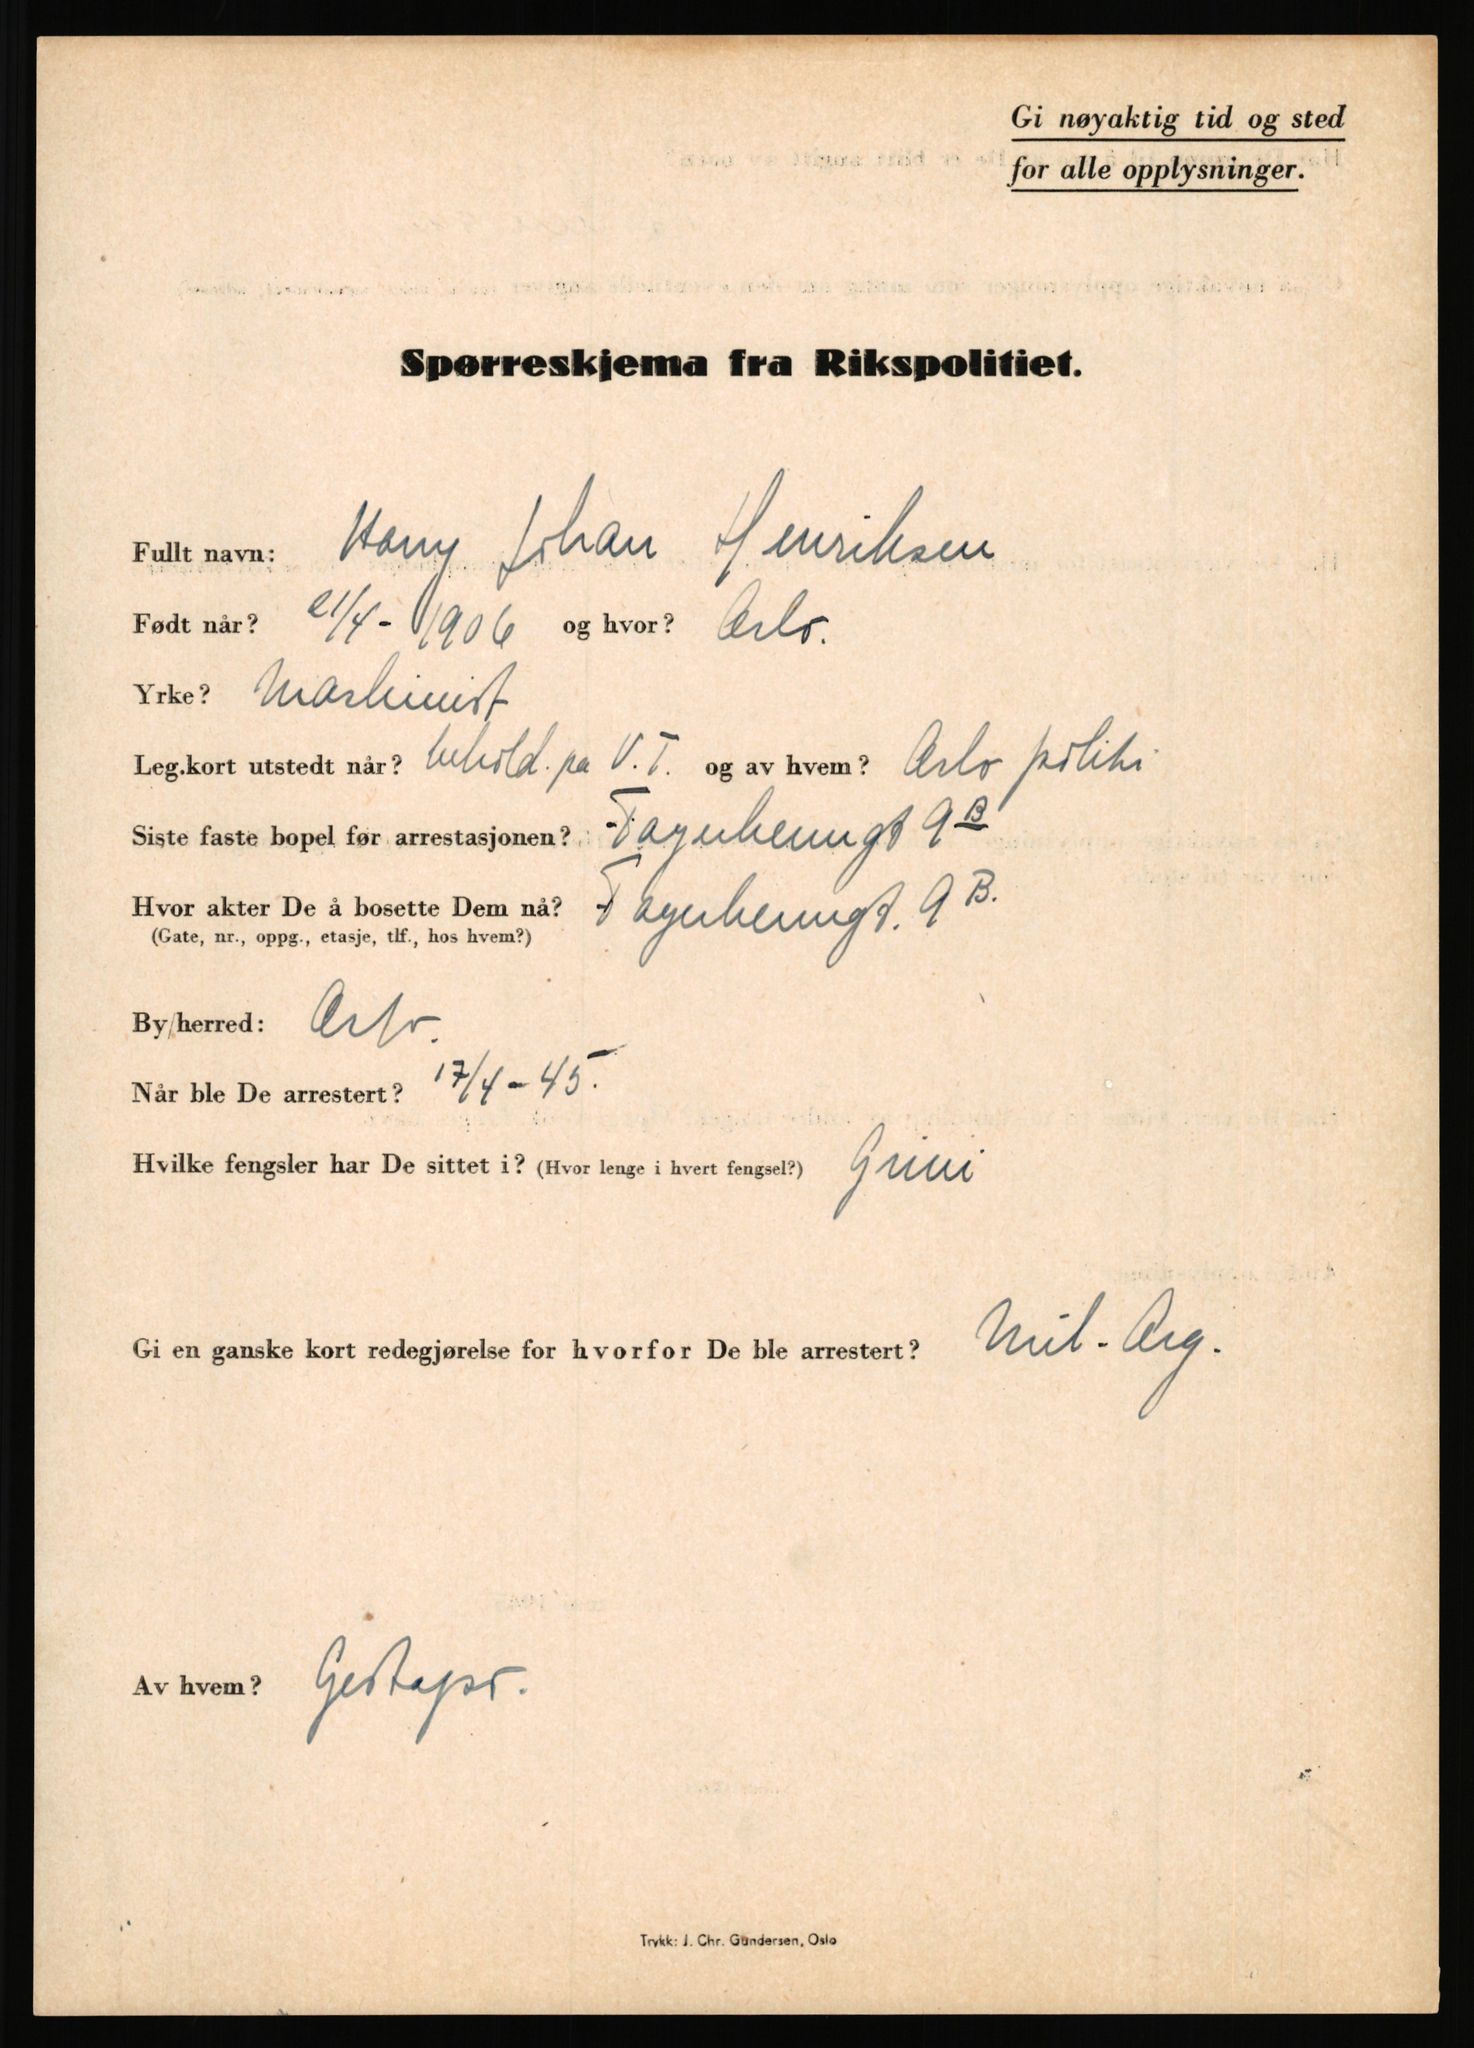 Gi nøyaktig tid og sted
for alle opplysninger.
Spørreskjema fra Rikspolitiet.
Fullt navn: Harry Johan Henriksen
Født når? 21/4-1906 og hvor? Oslo.
Yrke? Maskinist
Leg.kort utstedt når? behold. på V.T. og av hvem? Oslo politi
Siste faste bopel før arrestasjonen? Fagerheimgt 9B
Hvor akter De å bosette Dem nå? Fagerheimgt. 9B.
(Gate, nr., oppg., etasje, tlf., hos hvem?)
By/herred: Oslo.
Når ble De arrestert? 17/4-45.
Hvilke fengsler har De sittet i? (Hvor lenge i hvert fengsel?) Grini
Gi en ganske kort redegjørelse for hvorfor De ble arrestert? Mil-Org.
Av hvem? Gestapo.
Trykk: J. Chr. Gundersen, Oslo